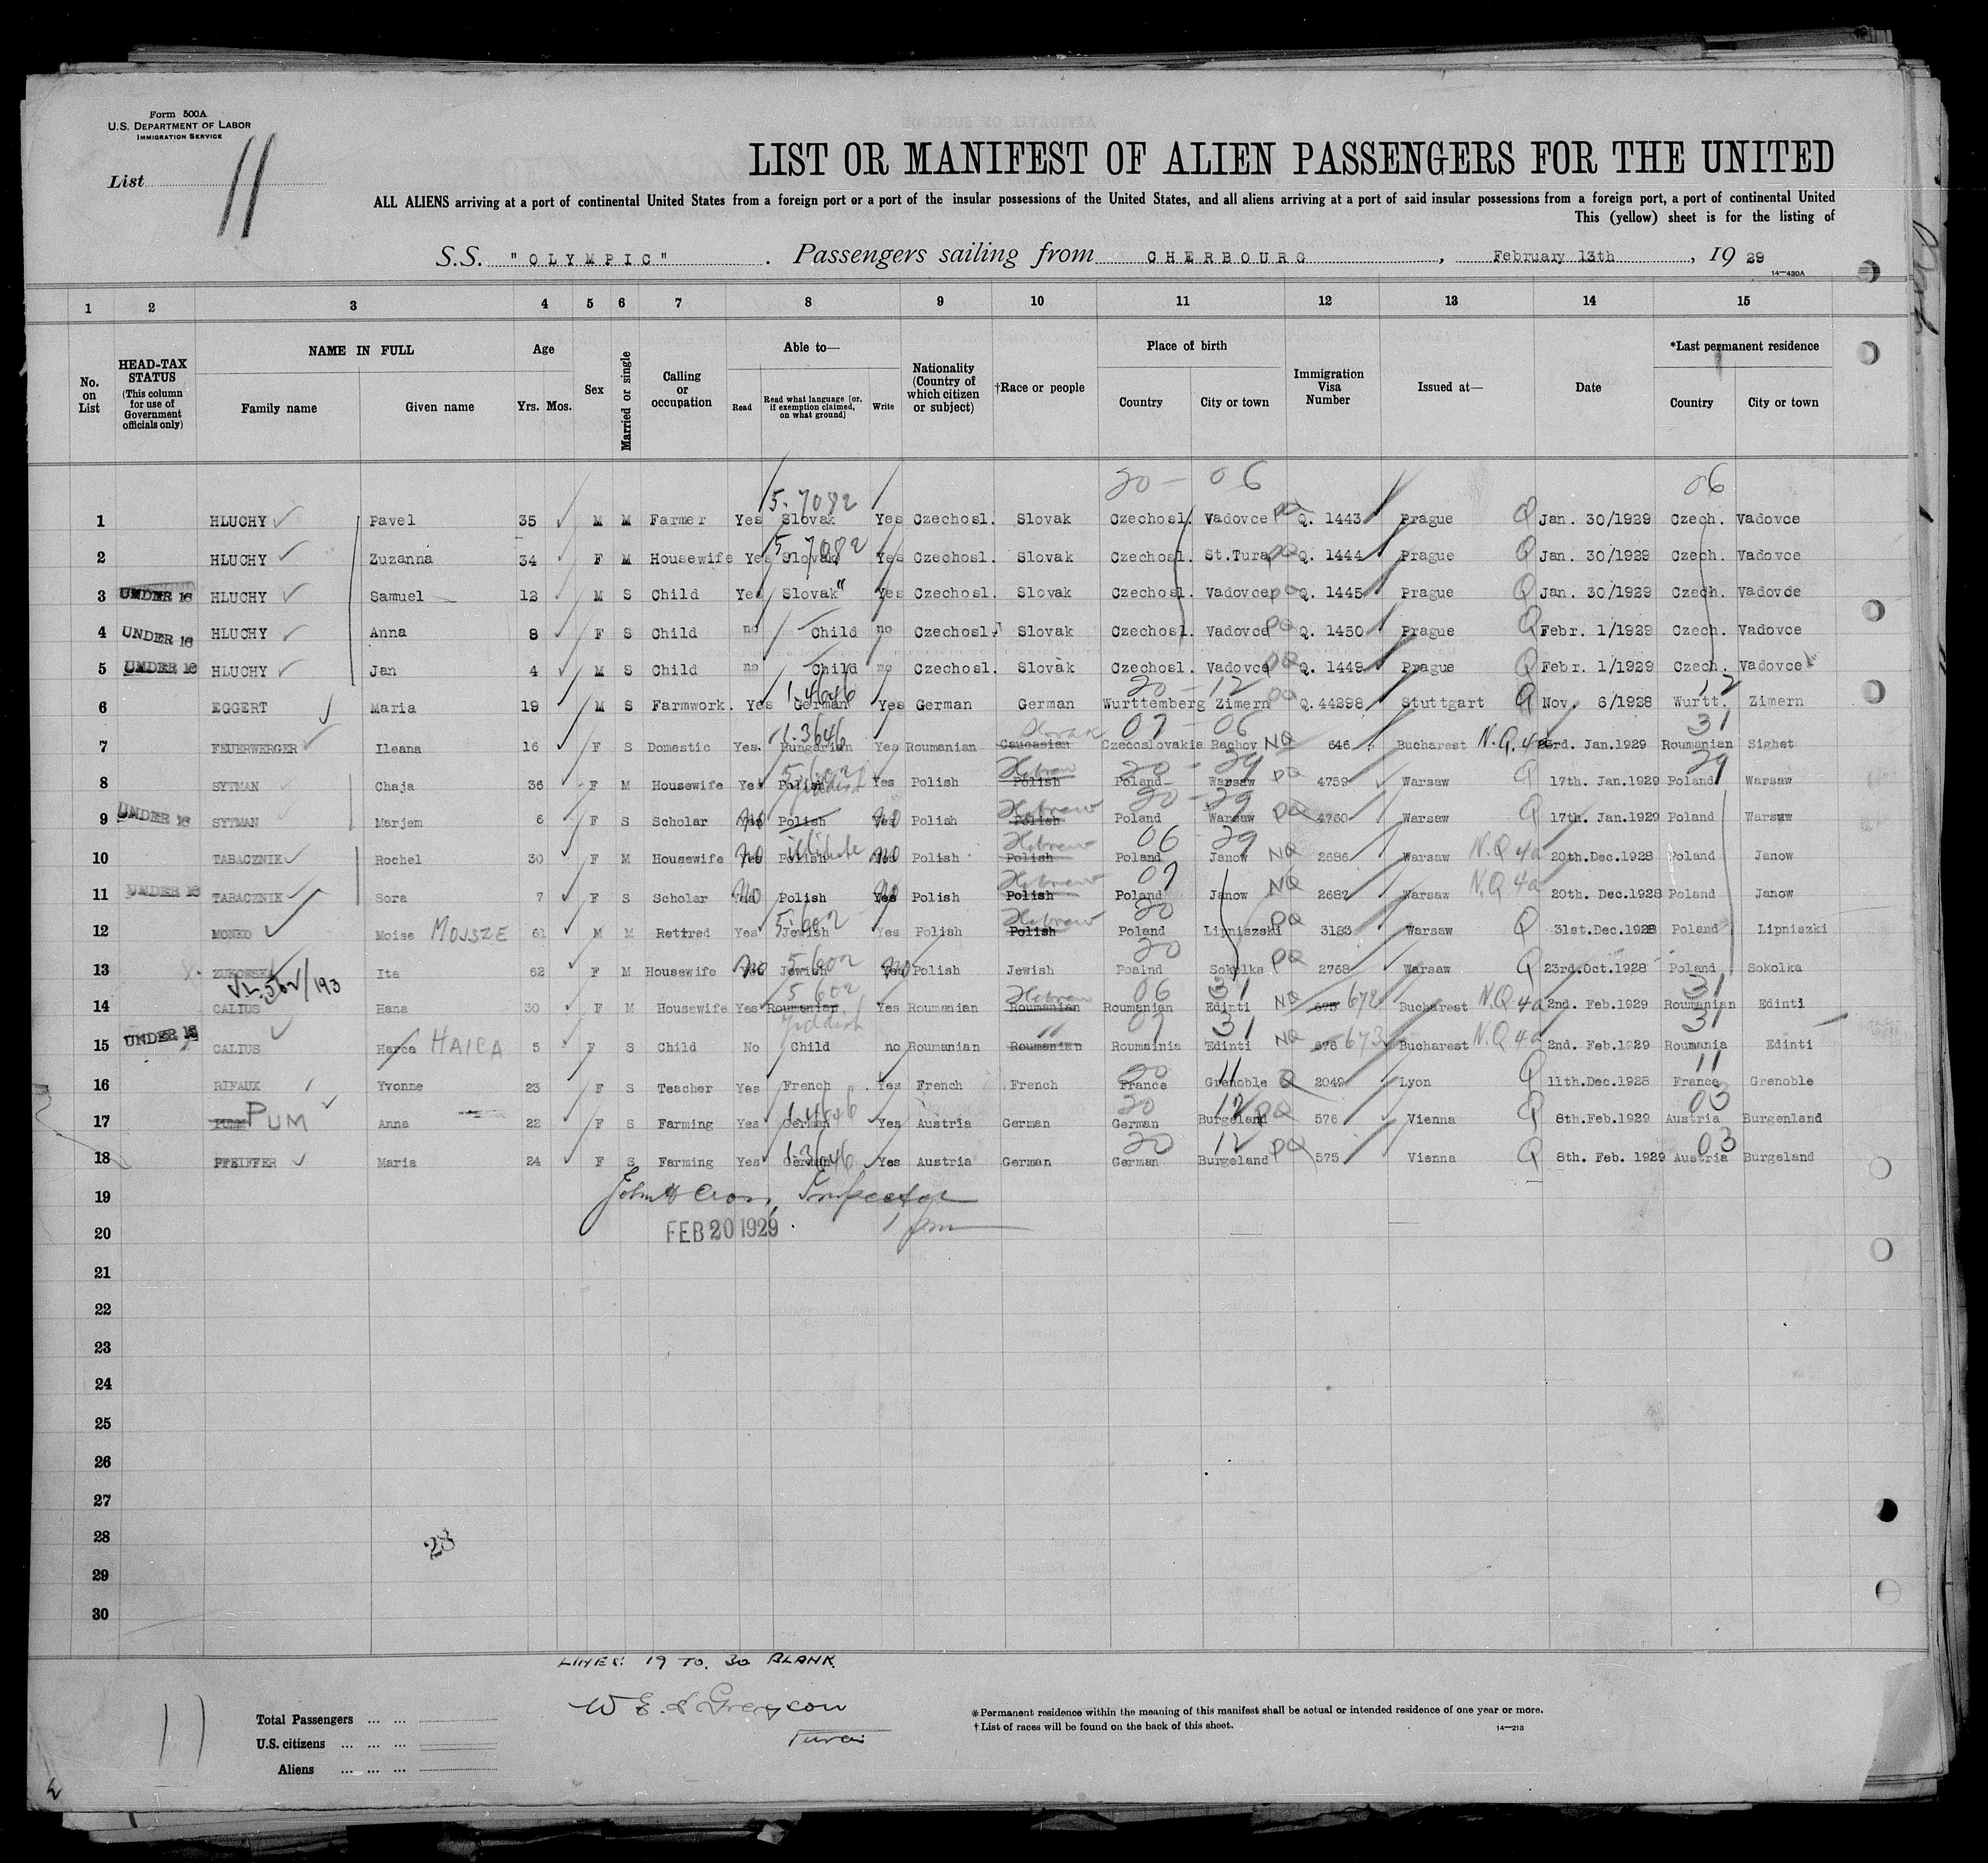 Form 500A
U.S. DEPARTMENT OF LABOR
IMMIGRATION SERVICE
List 11
LIST OR MANIFEST OF ALIEN PASSENGERS FOR THE UNITED
ALL ALIENS arriving at a port of continental United States from a foreign port or a port of the insular possessions of the United States, and all aliens arriving at a port of said insular possessions from a foreign port, a port of continental United
This (yellow) sheet is for the listing of
S.S. "OLYMPIC". Passengers sailing from CHERBOURG, February 13th, 1929
14—430A
1 2 3 4 5 6 7 8 9 10 11 12 13 14 15
No. on List
HEAD-TAX STATUS (This column for use of Government officials only)
NAME IN FULL Family name Given name
Age Yrs. Mos.
Sex
Married or single
Calling or occupation
Able to— Read Read what language (or, if exemption claimed, on what ground) Write
Nationality (Country of which citizen or subject)
†Race or people
Place of birth Country City or town
Immigration Visa Number
Issued at—
Date
*Last permanent residence Country City or town
5.7082 20 — 06 06
1 HLUCHY Pavel 35 M M Farmer Yes Slovak Yes Czechosl. Slovak Czechosl. Vadovce PQ Q. 1443 Prague Q Jan. 30/1929 Czech. Vadovce
5 7082
2 HLUCHY Zuzanna 34 F M Housewife Yes Slovak Yes Czechosl. Slovak Czechosl. St.Tura PQ Q. 1444 Prague Q Jan. 30/1929 Czech. Vadovce
3 UNDER 16 HLUCHY Samuel 12 M S Child Yes Slovak " Yes Czechosl. Slovak Czechosl. Vadovce PQ Q. 1445 Prague Q Jan. 30/1929 Czech. Vadovce
4 UNDER 16 HLUCHY Anna 8 F S Child no Child no Czechosl. Slovak Czechosl. Vadovce PQ Q. 1450 Prague Q Febr. 1/1929 Czech. Vadovce
5 UNDER 16 HLUCHY Jan 4 M S Child no Child no Czechosl. Slovak Czechosl. Vadovce PQ Q. 1449 Prague Q Febr. 1/1929 Czech. Vadovce
1.4646 20 — 12 12
6 EGGERT Maria 19 M S Farmwork. Yes German Yes German German Wurttemberg Zimern PQ Q.44298 Stuttgart Q Nov. 6/1928 Wurtt. Zimern
1.3646 Slovak 07 — 06 31
7 FEUERWERGER Ileana 16 F S Domestic Yes. Hungarian Yes Roumanian Caucasian Czecoslovakia Rachov NQ 646 Bucharest N.Q. 4a 23rd. Jan.1929 Roumanian Sighet
5.602 Hebrew 20 - 29 29
8 SYTMAN Chaja 36 F M Housewife Yes Polish Yiddish Yes Polish Polish Poland Warsaw PQ 4759 Warsaw Q 17th. Jan.1929 Poland Warsaw
Hebrew 20 - 29
9 UNDER 16 SYTMAN Marjem 6 F S Scholar Yes no Polish Yes no Polish Polish Poland Warsaw PQ 4760 Warsaw Q 17th. Jan.1929 Poland Warsaw
Hebrew 06 29
10 TABACZNIK Rochel 30 F M Housewife Yes no Polish Yes no Polish Polish Poland Janow NQ 2686 Warsaw N.Q 4a 20th.Dec.1928 Poland Janow
Hebrew 07
11 UNDER 16 TABACZNIK Sora 7 F S Scholar Yes no Polish Yes no Polish Polish Poland Janow NQ 2687 Warsaw N.Q 4a 20th. Dec.1928 Poland Janow
5.602 Hebrew 20
12 MONKO Moise MOJSZE 61 M M Retired Yes Jewish Yes Polish Polish Poland Lipniszski PQ 3183 Warsaw Q 31st.Dec.1928 Poland Lipniszki
5.602 20
13 ZUKOWSKA Ita 62 F M Housewife Yes no Jewish Yes no Polish Jewish Poalnd Sokolka PQ 2768 Warsaw Q 23rd.Oct.1928 Poland Sokolka
5 602 Hebrew 06 31 31
14 CALIUS Hana 30 F M Housewife Yes Roumanian. Yiddish Yes Roumanian Roumanian Roumanian Edinti NQ 675 672 Bucharest N.Q 4a 2nd. Feb.1929 Roumanian Edinti
" 07 31 31
15 UNDER 16 CALIUS Harca HAICA 5 F S Child No Child no Roumanian Roumanian Roumainia Edinti NQ 676 673 Bucharest N.Q 4a 2nd. Feb.1929 Roumania Edinti
20 11 11
16 RIFAUX Yvonne 23 F S Teacher Yes French Yes French French France Grenoble Q 2049 Lyon Q 11th.Dec.1928 France Grenoble
1.4646 20 12 03
17 PUM Anna 22 F S Farming Yes German Yes Austria German German Burgeland PQ 576 Vienna Q 8th.Feb.1929 Austria Burgenland
1.3646 20 12 03
18 PFEIFFER Maria 24 F S Farming Yes German Yes Austria German German Burgeland PQ 575 Vienna Q 8th. Feb. 1929 Austria Burgeland
19 John H Cron, Inspector
20 FEB 20 1929 1 pm
21
22
23
24
25
26
27
28 28
29
30
LINES: 19 TO. 30 BLANK.
11
Total Passengers
U.S. citizens
Aliens
*Permanent residence within the meaning of this manifest shall be actual or intended residence of one year or more.
†List of races will be found on the back of this sheet.
14—213